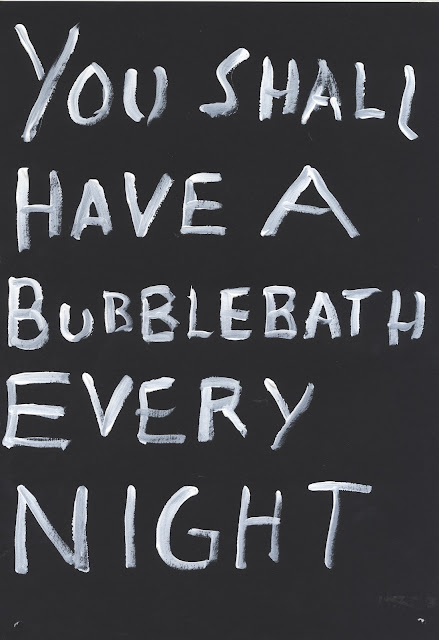 YOU SHALL
HAVE A
BUBBLEBATH
EVERY
NIGHT